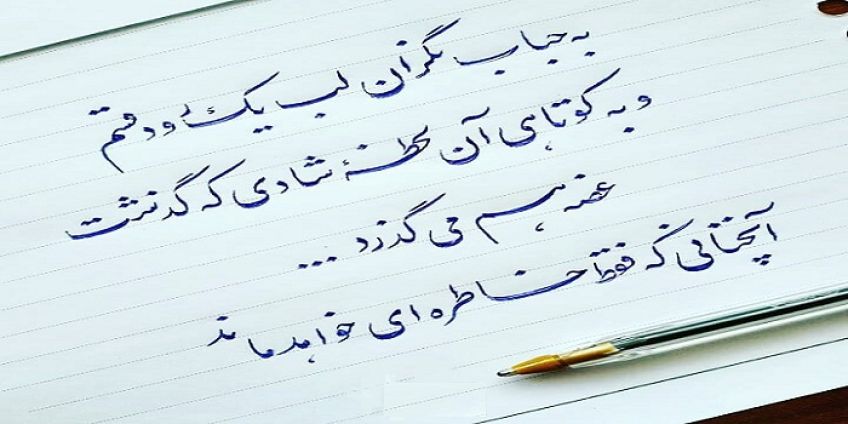 به حباب نگران لب یک رود قسم
و به کوتاهی آن لحظهٔ شادی که گذشت
غصه هم می گذرد ...
آنچنانی که فقط خاطره ای خواهد ماند